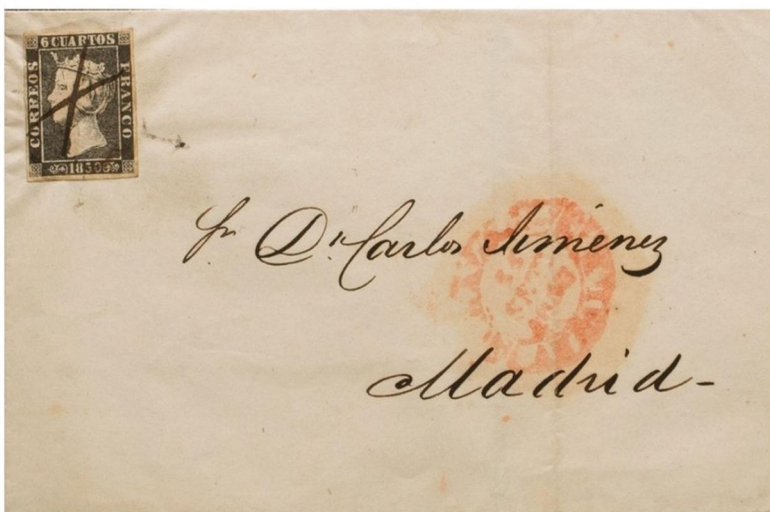 6 CUARTOS
CORREOS
FRANCO
Sr. Dn. Carlos Jiménez
Madrid-